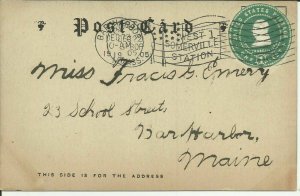 Post Card
FEB 28
10-AM
1905
WEST
SOMERVILLE
STATION
UNITED STATES
Miss Tracis G. Emery
23 School Street
Bar Harbor,
Maine
THIS SIDE IS FOR THE ADDRESS